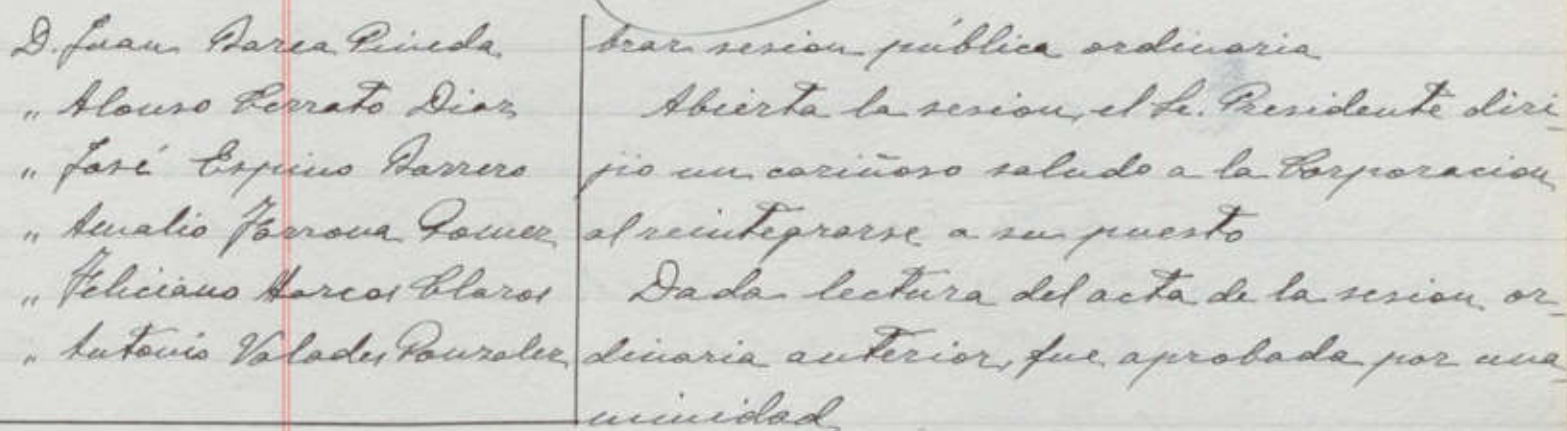 D. Juan Barea Pineda
" Alonso Cerrato Diaz
" José Espino Barrero
" Amalio Farrona Gomez
" Feliciano Marcos Claros
" Antonio Valades Gonzalez
brar sesion pública ordinaria
Abierta la sesion, el Sr. Presidente diri
jio un cariñoso saludo a la Corporacion
al reintegrarse a su puesto
Dada lectura del acta de la sesion or
dinaria anterior, fue aprobada por una
nimidad